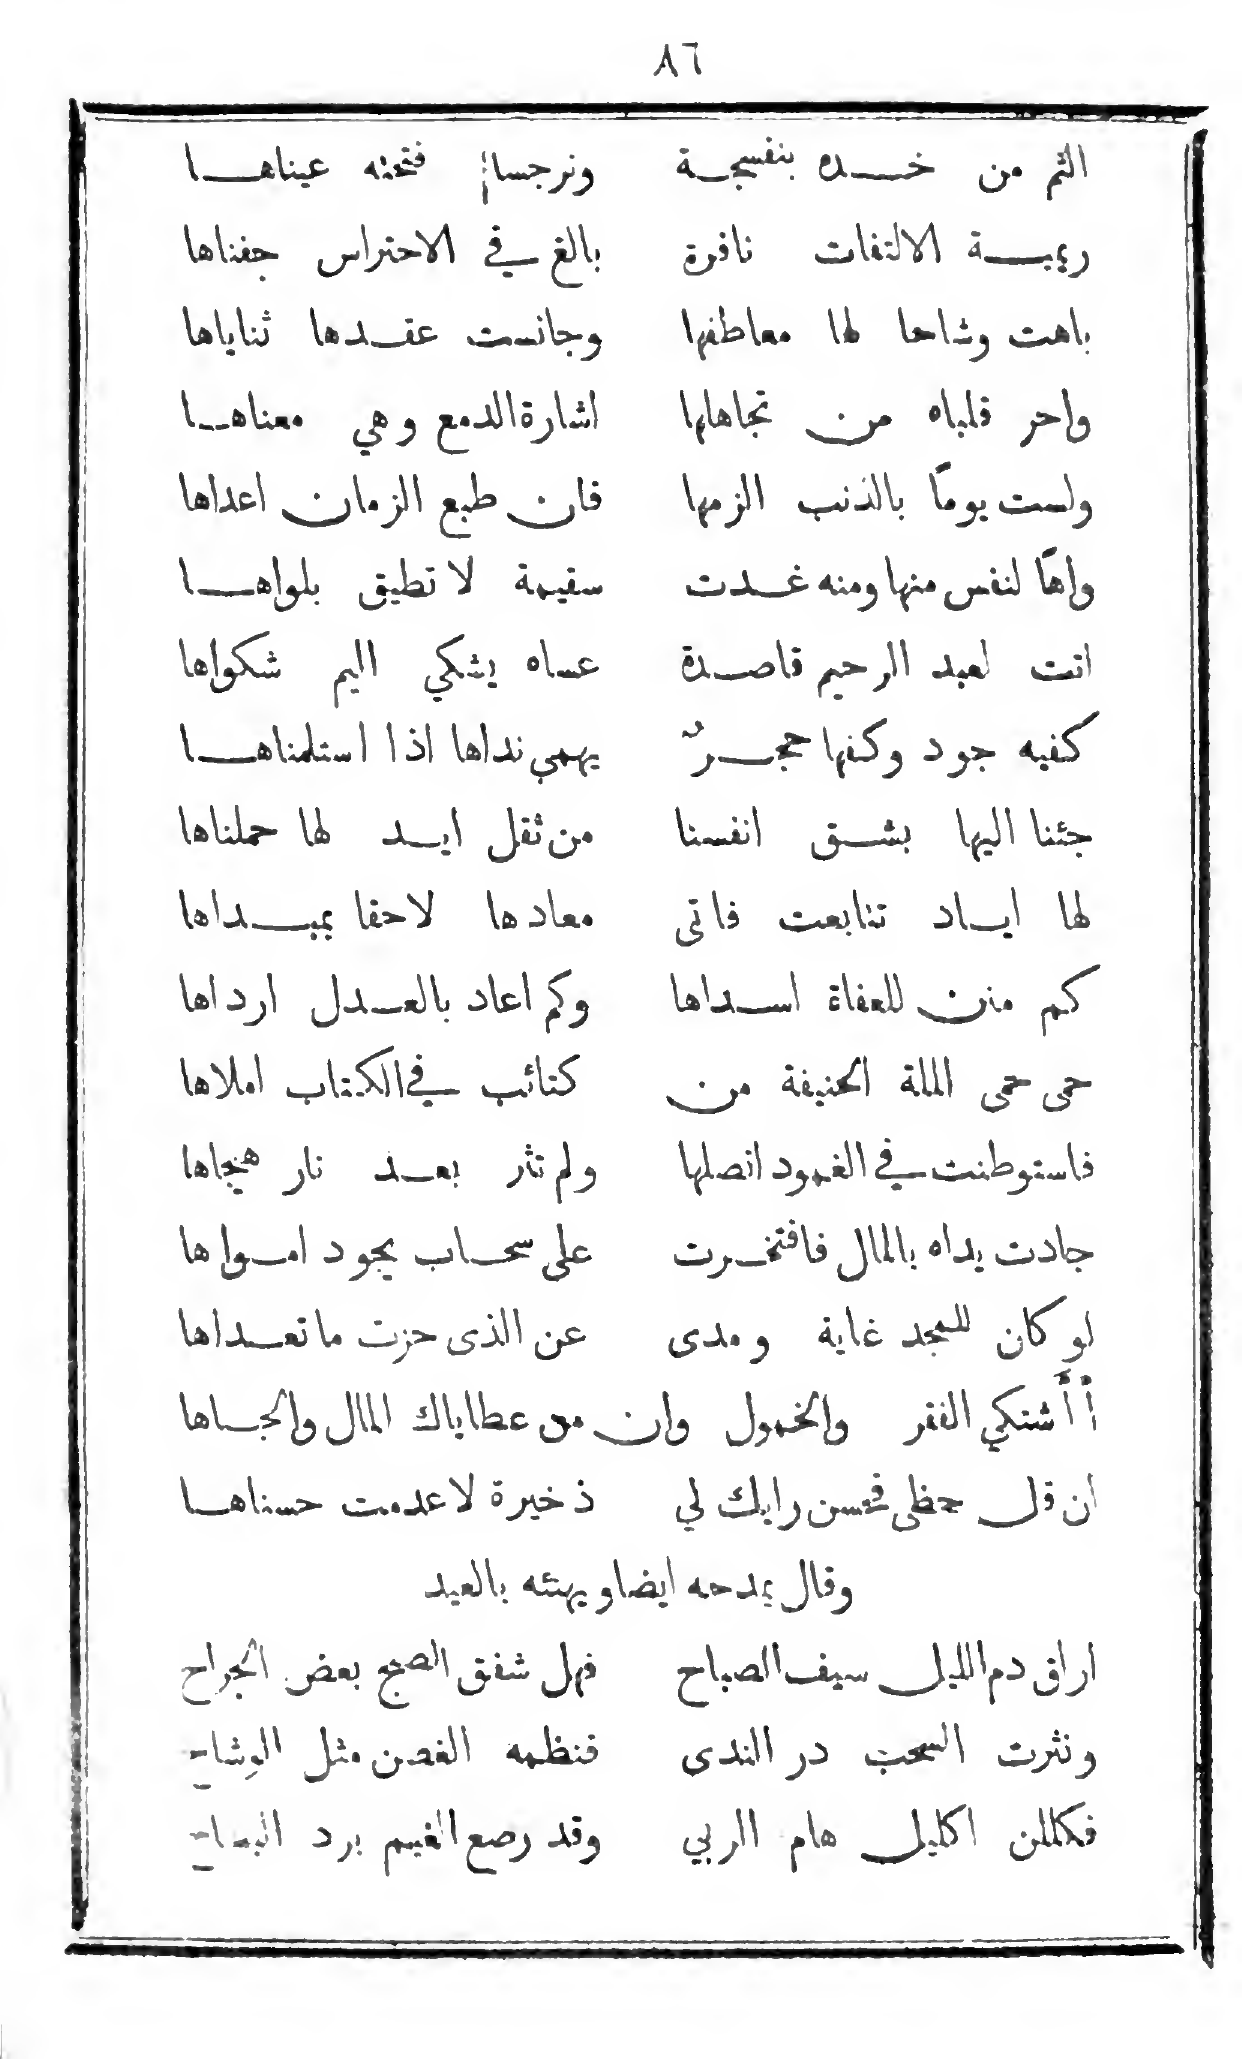 ٨٦
الثم من خده بنفسجة ونرجسا فتحته عيناها
ريمية الالتفات نافرة بالغ في الاحتراس جفناها
باهت وشاحا لها معاطفها وجانست عقدها ثناياها
واحر قلباه من تجاهلها اشارة الدمع وهي معناها
ولست يوماً بالذنب الزمها فان طبع الزمان اعداها
واهاً لنفس منها ومنه غدت سقيمة لا تطيق بلواها
اتت لعبد الرحيم قاصدة عساه يشكي اليم شكواها
كفبه جود وكفها حجرٌ يهمي نداها اذا استلمناها
جئنا اليها بشق انفسنا من ثقل ايد لها حملناها
لها اياد تتابعت فاتى معادها لاحقا بمبداها
كم منن للعفاة اسداها وكم اعاد بالعدل ارداها
حمى حمى الملة الحنيفة من كتائب في الكتاب املاها
فاستوطنت في الغمود انصلها ولم تثر بعد نار هيجاها
جادت يداه بالمال فافتخرت على سحاب يجود امواها
لو كان للمجد غاية ومدى عن الذى حزت ما تعداها
أأشتكي الفقر والخمول وان من عطاياك المال والجاها
ان قل حظي فحسن رايك لي ذخيرة لا عدمت حسناها
وقال يمدحه ايضا ويهنئه بالعيد
اراق دم الليل سيف الصباح فهل شفق الصبح بعض الجراح
ونثرت السحب در الندى فنظمه الغصن مثل الوشاح
فكللن اكليل هام الربي وقد رصع الغيم برد البطاح